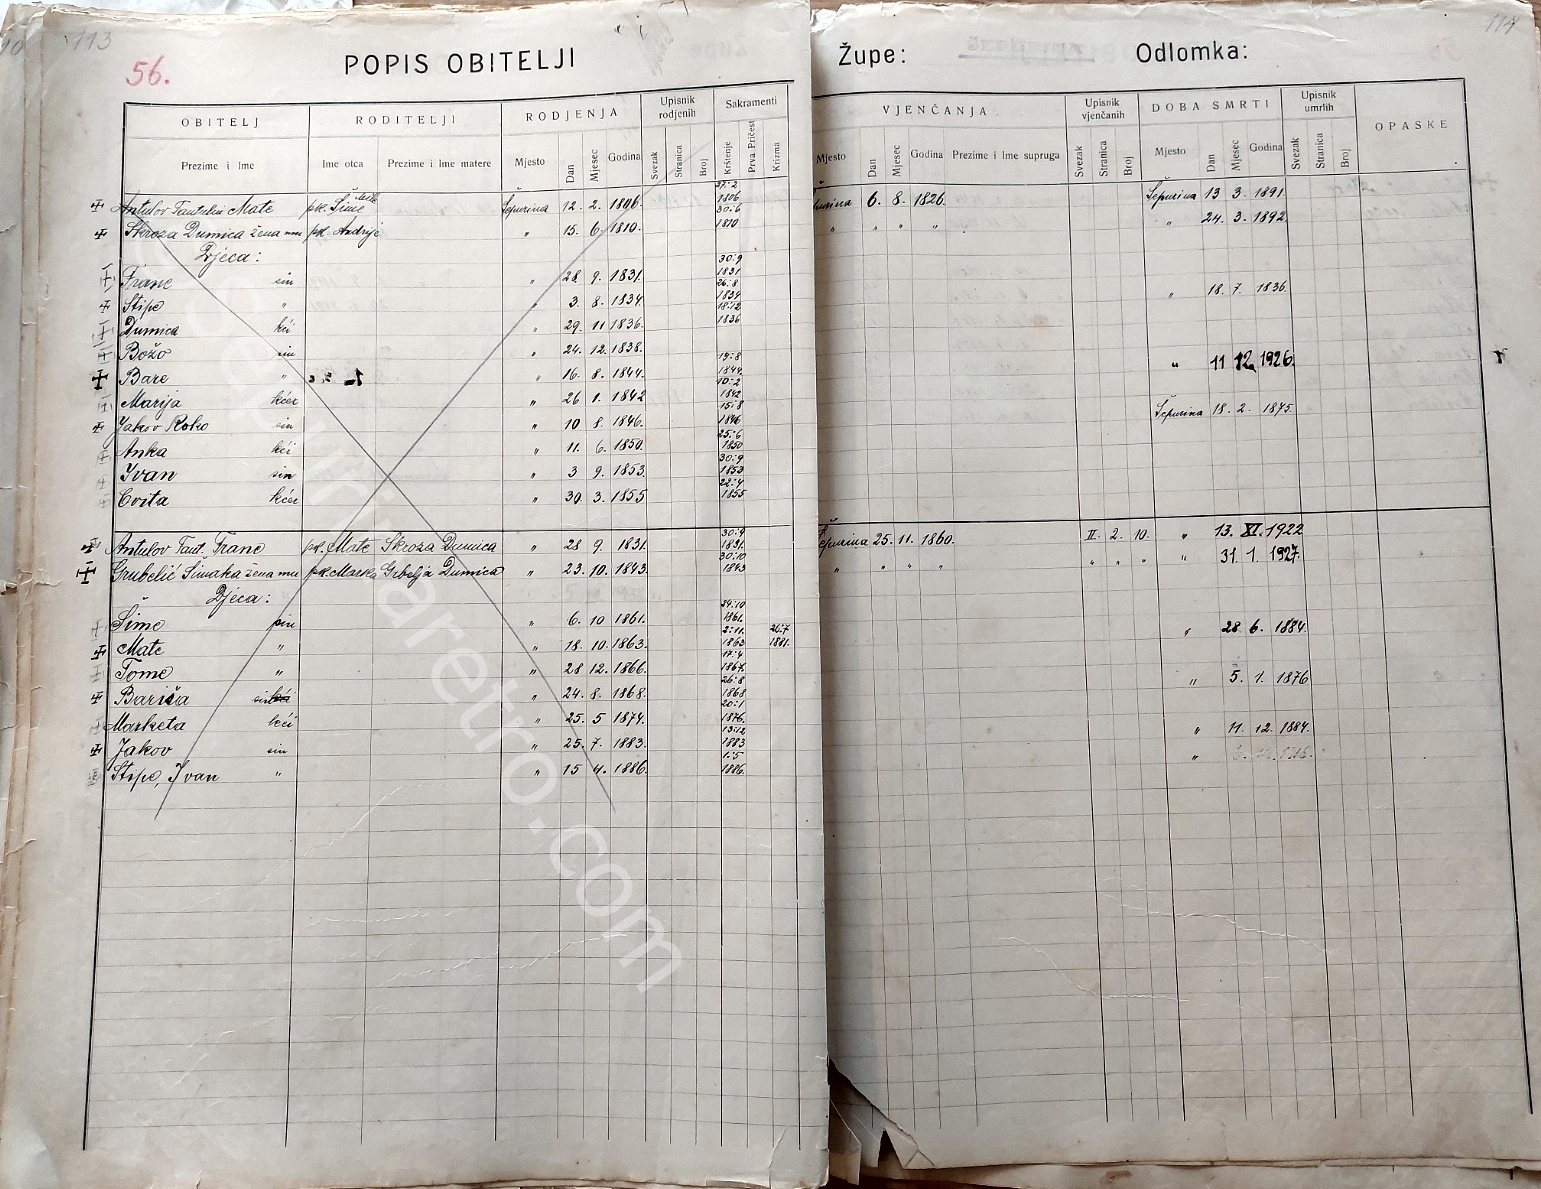 113
114
56.
POPIS OBITELJI
Župe:
Odlomka:
OBITELJ RODITELJI RODJENJA Upisnik rodjenih Sakramenti VJENČANJA Upisnik vjenčanih DOBA SMRTI Upisnik umrlih OPASKE
Prezime i Ime Ime otca Prezime i Ime matere Mjesto Dan Mjesec Godina Svezak Stranica Broj Krštenje Prva Pričest Krizma Mjesto Dan Mjesec Godina Prezime i Ime supruga Svezak Stranica Broj Mjesto Dan Mjesec Godina Svezak Stranica Broj
Antulov Mate pok. Šime Šepurina 12. 2. 1806. 27.2 1806 6. 8. 1826. Šepurina 13 3. 1891.
Skroza Dumica žena mu pok. Andrije " 15. 6. 1810. 30.6 1810 " " " " " 24. 3. 1892
Djeca:
Frane sin " 28 9. 1831. 30.9 1831
Stipe " " 3. 8. 1834. 26.8 1834 " 18. 7. 1836.
Dumica kći " 29. 11 1836. 18.12 1836
Božo sin " 24. 12. 1838.
Bare " " 16. 8. 1844. 19.8 1844. " 11 12. 1926.
Marija kćer " 26 1. 1842 10.2 1842
Jakov Roko sin " 10 8. 1846. 15.8 1846 Šepurina 18. 2. 1875.
Anka kći " 11. 6. 1850. 25.6 1850
Ivan sin " 3 9. 1853. 30.9 1853
Cvita kćer " 30. 3. 1855 22.4 1855
Antulov Fant. Frane pok. Mate Skroza Dumica " 28 9. 1831. 30.9 1831. Šepurina 25. 11. 1860. II. 2. 10. " 13. XI. 1922
Grubelić Šimaka žena mu pok. Marka Dumica " 23. 10. 1843. 30.10 1843 " " " " " " " " 31. 1. 1927.
Djeca:
Šime sin " 6. 10 1861. 24.10 1861.
Mate " " 18. 10. 1863. 2.11. 1863 26.7 1881. " 28. 6. 1884.
Tome " " 28 12. 1866. 17.4 1867.
Bariša sin " 24. 8. 1868. 26.8 1868 " 5. 1. 1876
Marketa kći " 25. 5 1874. 20.1 1876.
Jakov sin " 25. 7. 1883. 13.12 1883 " 11. 12. 1884.
Stipe, Ivan " " 15 4. 1886. 1.5 1886. "
sepurinaretro.com